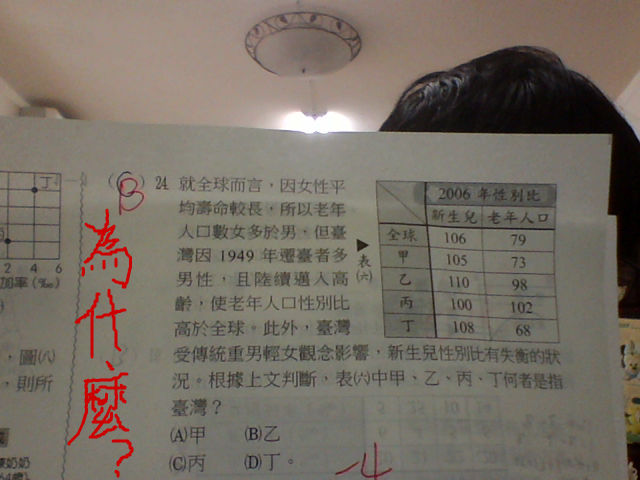 丁
2 4 6
加率(‰)
,圖㈧
,則所
(C)
B
24 就全球而言,因女性平
均壽命較長,所以老年
人口數女多於男,但臺
灣因1949年遷臺者多
男性,且陸續邁入高
齡,使老年人口性別比
高於全球。此外,臺灣
受傳統重男輕女觀念影響,新生兒性別比有失衡的狀
況。根據上文判斷,表㈥中甲、乙、丙、丁何者是指
臺灣?
(A)甲 (B)乙
(C)丙 (D)丁。
▶表㈥
2006 年性別比
新生兒 老年人口
全球 106 79
甲 105 73
乙 110 98
丙 100 102
丁 108 68
為什麼?
-4